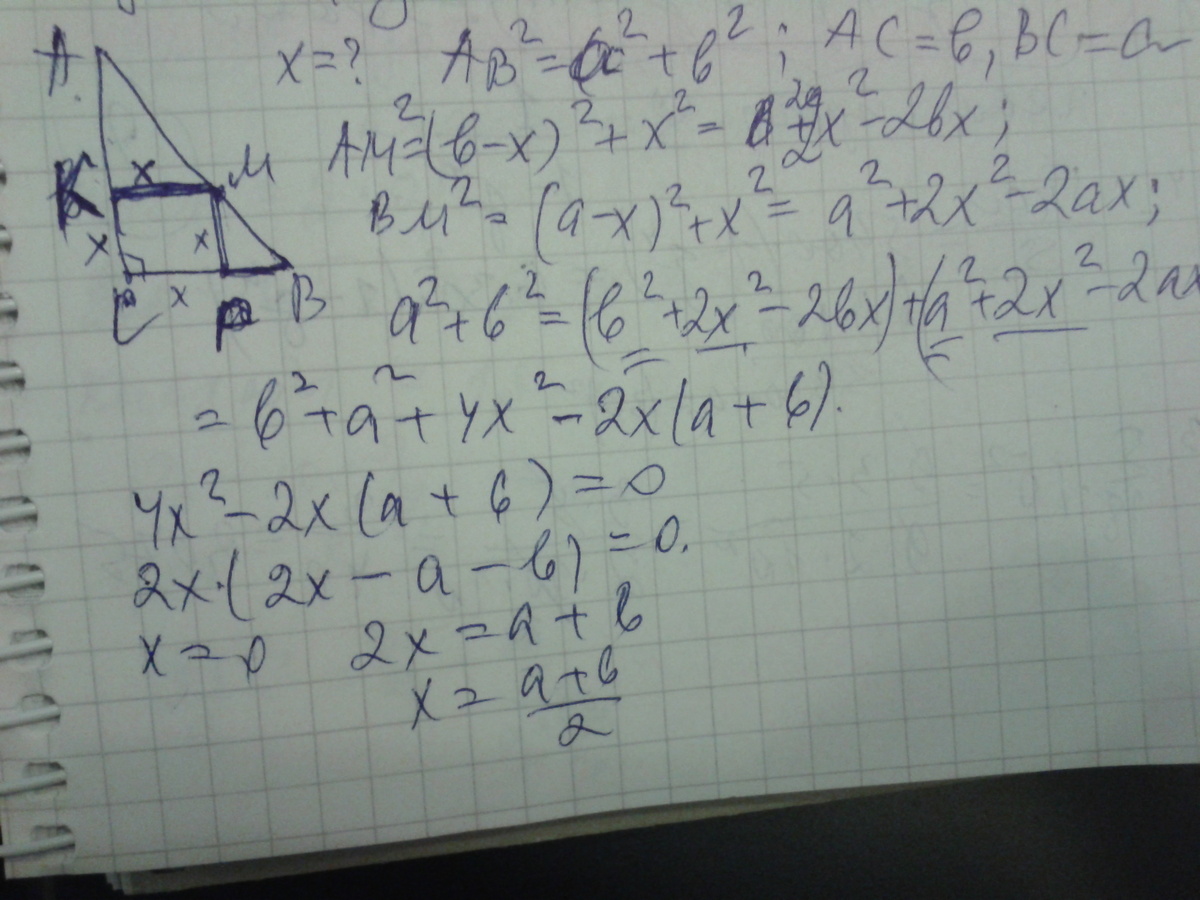 A x = ? AB² = a² + b² ; AC = b, BC = a
AM² = (b - x)² + x² = + 2x² - 2bx ;
K x M
BM² = (a - x)² + x² = a² + 2x² - 2ax ;
x x
C x P B
a² + b² = (b² + 2x² - 2bx) + (a² + 2x² - 2ax
= b² + a² + 4x² - 2x(a + b).
4x² - 2x(a + b) = 0
2x·(2x - a - b) = 0.
x = 0 2x = a + b
x = (a + b)/2